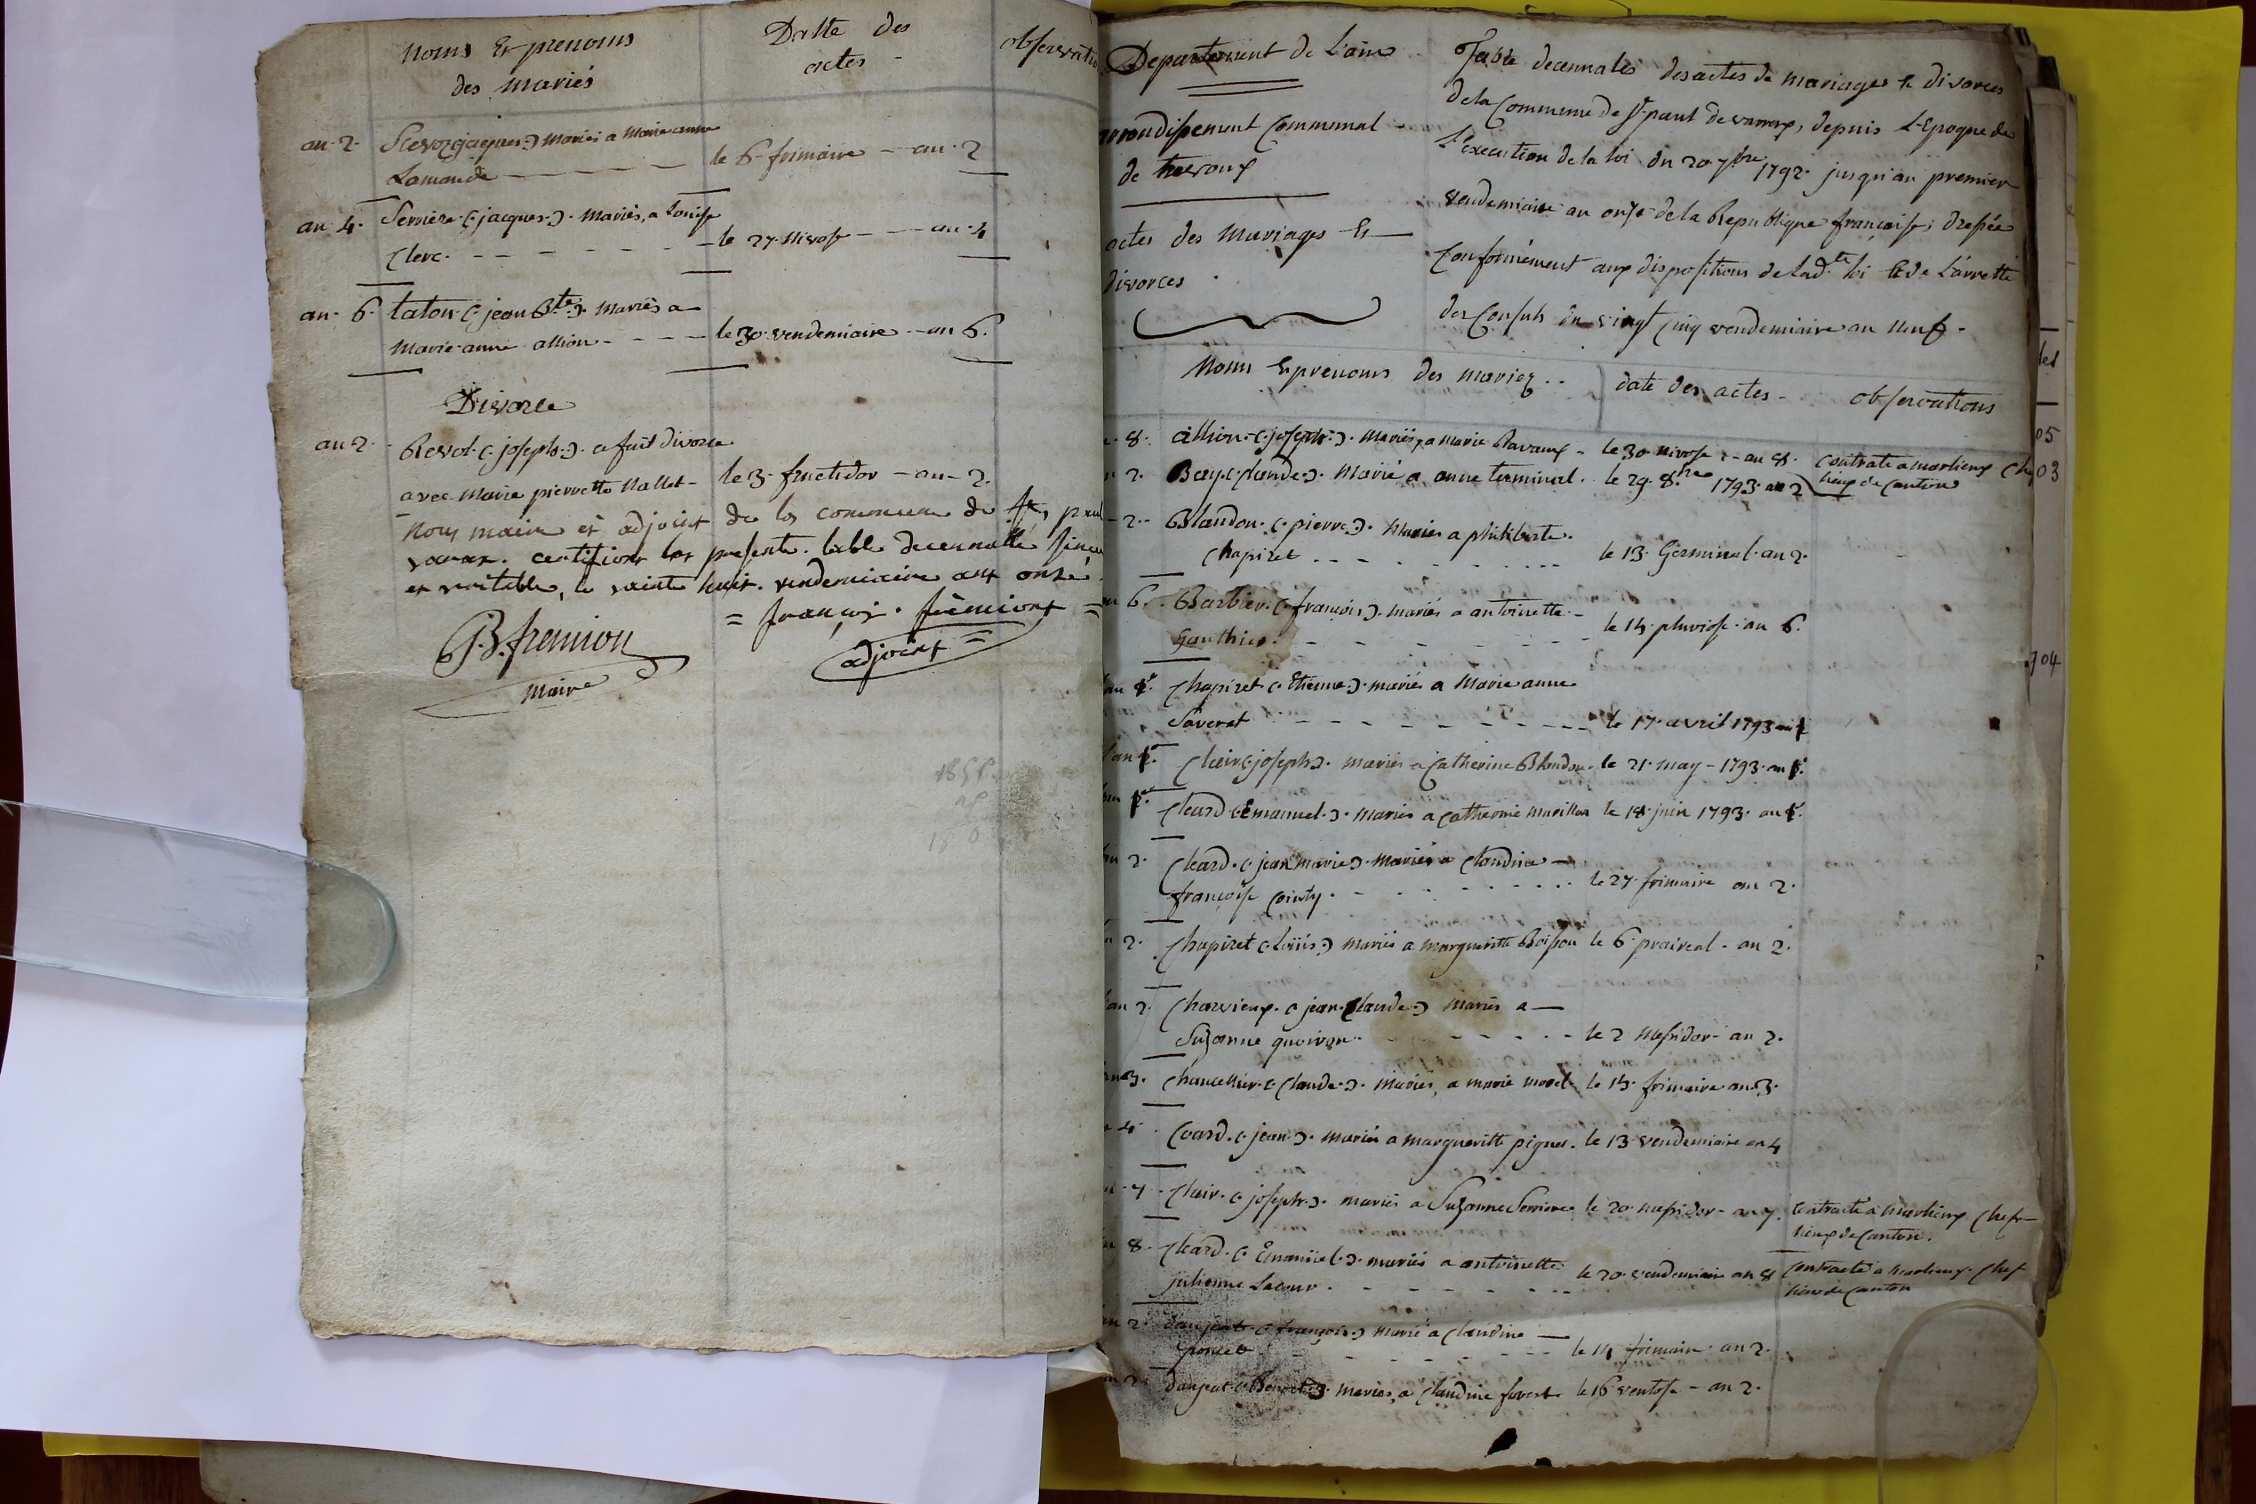 noms Et prenoms
des mariés
Datte des
actes
observatio
an 2. Stevoz (jacques) Mariés a Marie anne
Lamande le 6 frimaire an 2
an 4. Serriere (jacques) Mariés, a Louise
Clerc le 27 Nivose an 4
an 6. taton (jean Bte) Mariés a
Marie anne allion le 30 vendemiaire an 6.
Divorce
an 2. Revol (joseph) a fait divorce
avec Marie pierrette Mallet le 3 fructidor an 2.
Nous maire et adjoint de la commune de st paul
varax certifions la presente table decennalle sincer
et veritable, le vainte huit vendemiaire ant onzé
= françoi fremiont =
adjoint =
JB. fremion
Maire
Departement de L'ain
arrondissement Communal
de trevoux
actes des Mariages Et
divorces
Table decennales des actes de mariages & divorces
de la Commune de St paul de varax, depuis L'Epoque de
L'execution de la loi du 20 7bre 1792 jusqu'au premier
vendemiaire an onze de la Republique française, dressée
Conformément aux dispositions de Ladte loi & de L'arretté
des Consuls du vingt Cinq vendemiaire an neuf
Noms & prenoms des mariez date des actes observations
8. allion (joseph) Mariés, a Marie Ravaux le 30 nivose an 8. Contracté a marlieux Che
lieux de Canton
2. Bay (Claude) Marié a anne terminal le 29 8bre 1793 an 2
2. Blandon (pierre) Mariés a philiberte
Chapiret le 13 Germinal an 2.
6. Barbier (françois) mariés a antoinette
Gauthier le 14 pluviose an 6.
an 1er Chapiret (Etienne) mariés a Marie anne
Saverat le 17 avril 1793 an 1
an 1er Clair (joseph) mariés a Catherine Blandon le 21 may 1793 an 1er
1er Cleard (Emanuel) mariés a Catherine Marillon le 18 juin 1793 an 1er
2. Cleard (jean marie) mariés a Claudine
françoise Cointy le 27 frimaire an 2.
2. Chapiret (Loüis) mariés a marguerite Boisson le 6 praireal an 2.
an 2. Charvieux (jean Claude) mariés a
Suzanne quoiron le 2 Messidor an 2.
an 3. Chancellier (Claude) Mariés, a marie morel le 14 frimaire an 3.
4. Coard (jean) mariés a marguerite pigner le 13 vendemiaire an 4
7. Clair (joseph) mariés a Suzanne Serriere le 20 messidor an 7. Contracté a marlieux Chef
lieux de Canton.
8. Cleard (Emanüel) mariés a antoinette
julienne Lacour le 20 vendemiaire an 8 Contracté a marlieux Chef
lieu de Canton
an 2. danjeat (françois) marié a Claudine
poncet le 14 frimaire an 2.
danjeat (Benoit) mariés, a Claudine forest le 16 ventose an 2.